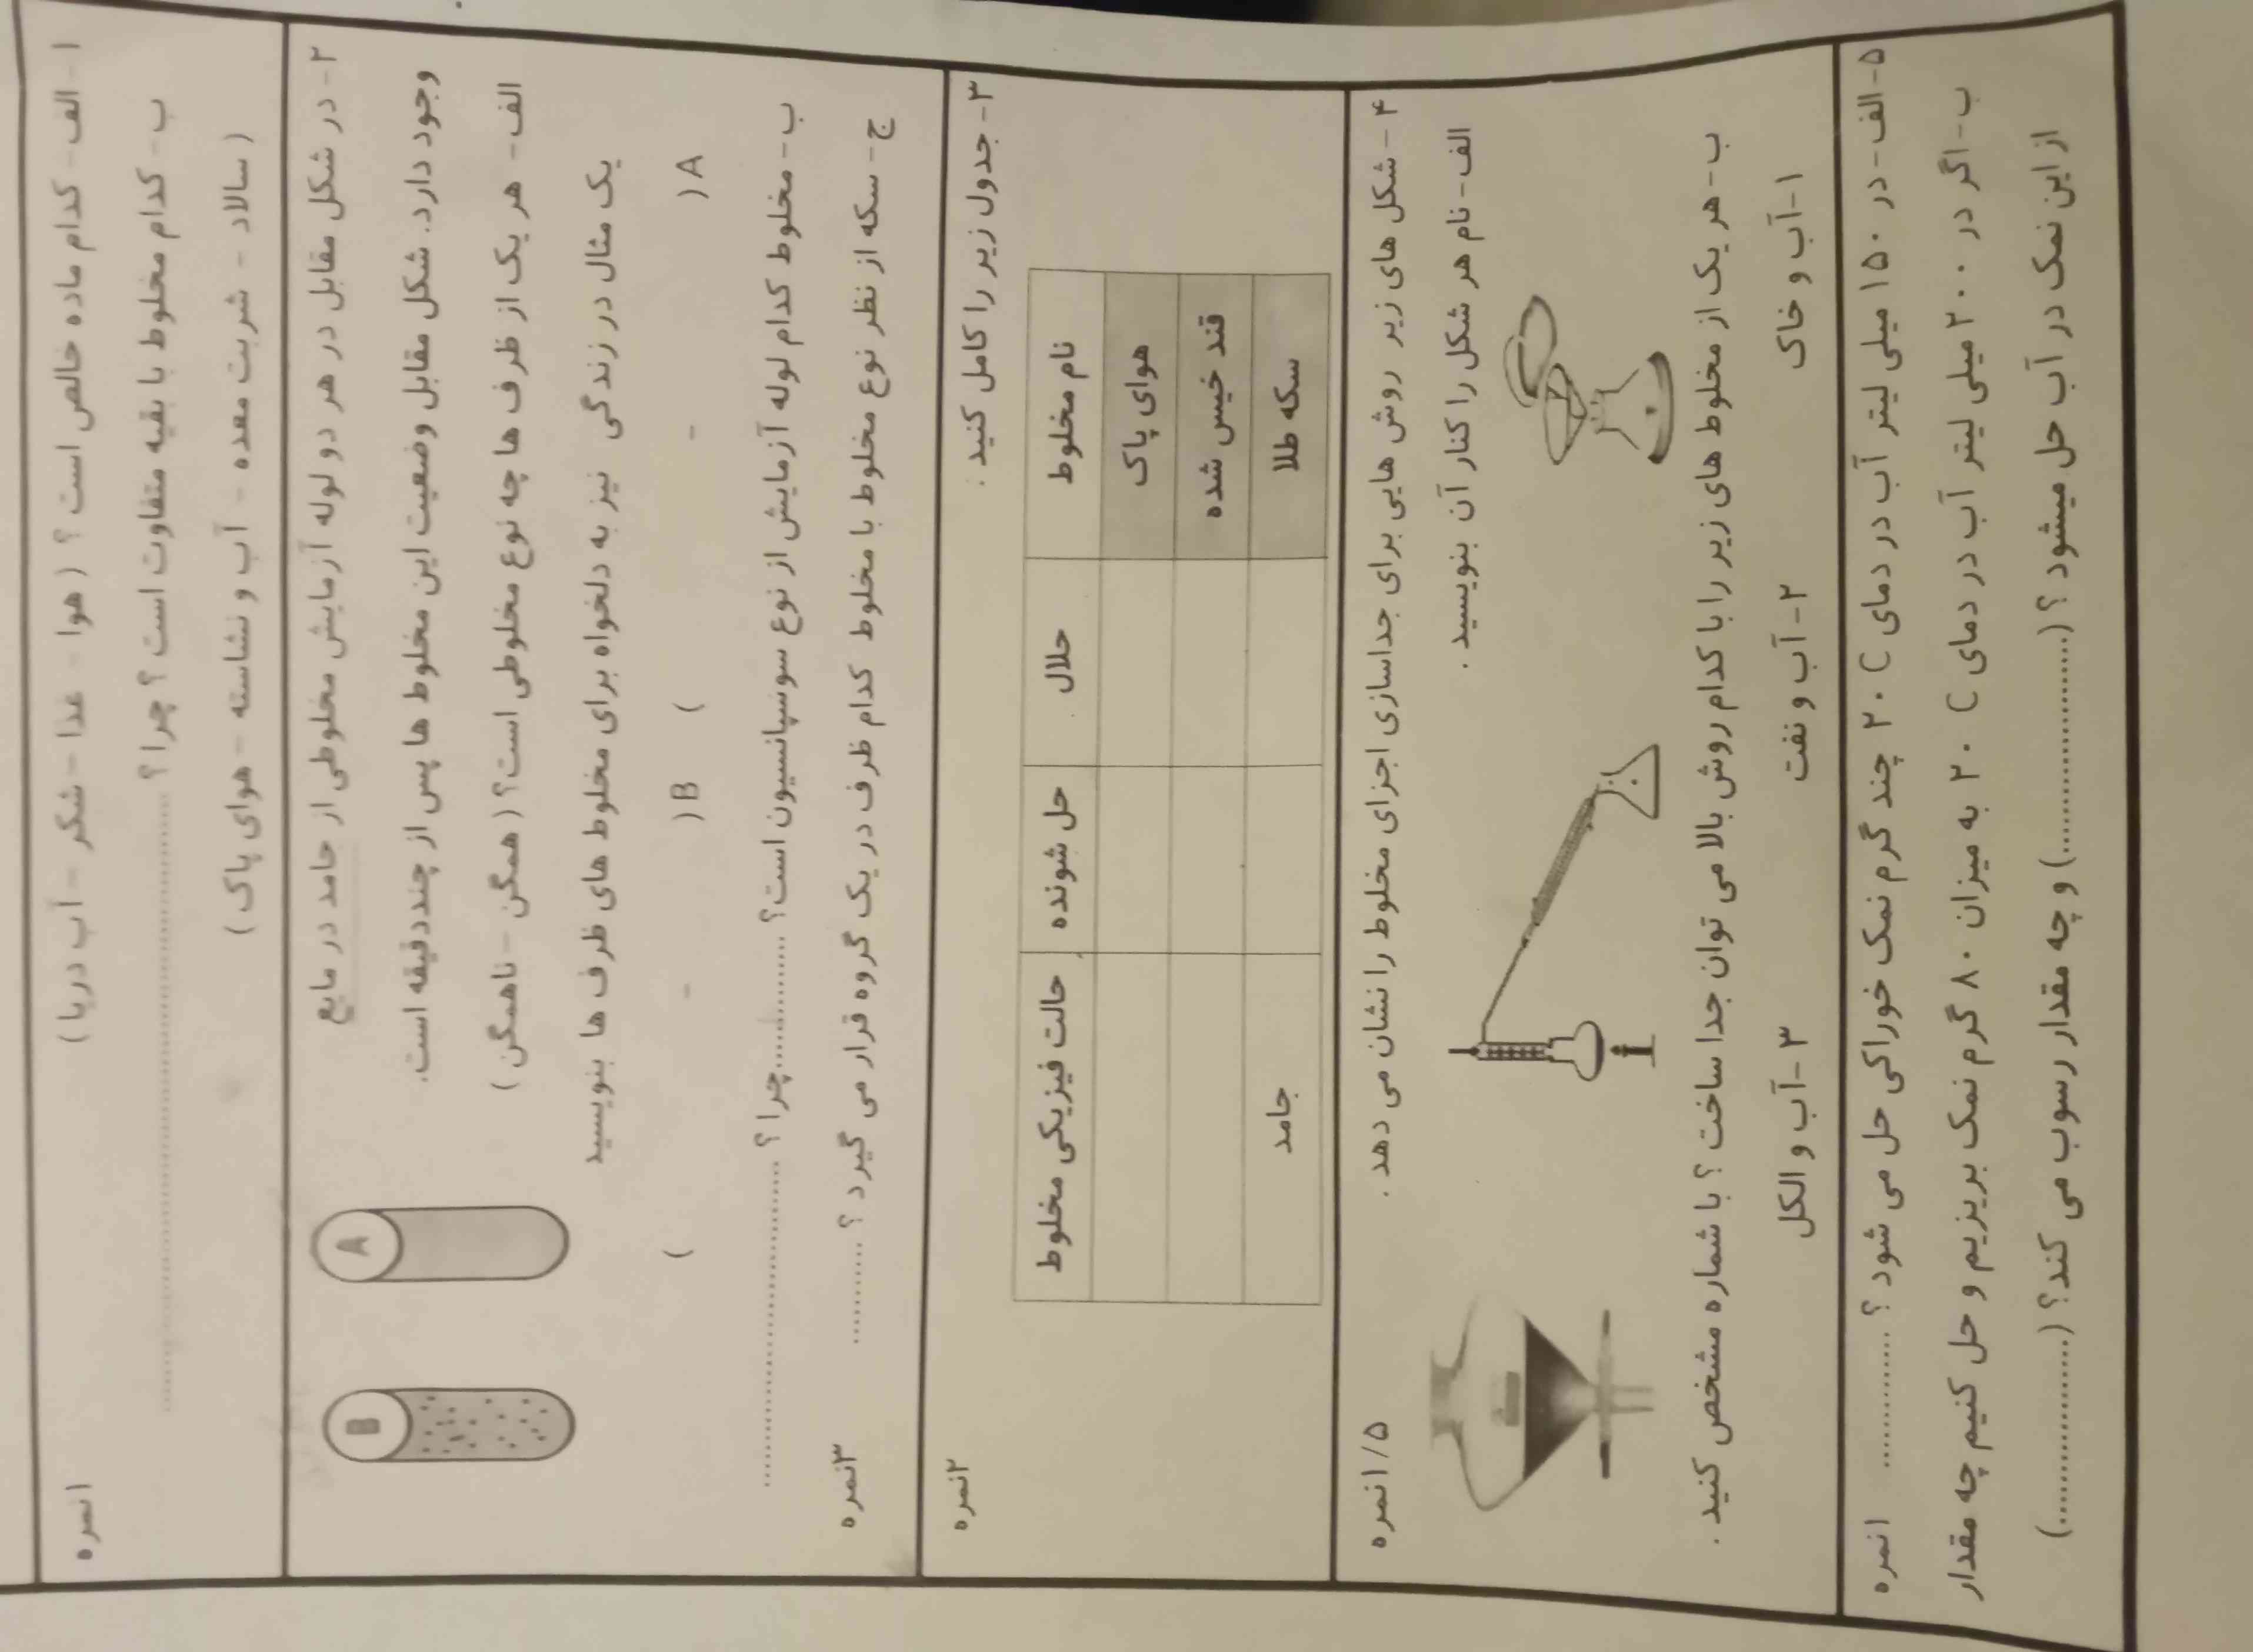 ۱- الف- کدام ماده خالص است ؟ ( هوا - غذا - شکر - آب دریا )
۱نمره
ب- کدام مخلوط با بقیه متفاوت است ؟ چرا ؟ ......................................................
( سالاد - شربت معده - آب و نشاسته - هوای پاک )
۲- در شکل مقابل در هر دو لوله آزمایش مخلوطی از جامد در مایع
وجود دارد. شکل مقابل وضعیت این مخلوط ها پس از چنددقیقه است.
الف- هر یک از ظرف ها چه نوع مخلوطی است؟ ( همگن - ناهمگن )
یک مثال در زندگی نیز به دلخواه برای مخلوط های ظرف ها بنویسید
A
B
A ( - ) B ( - )
ب- مخلوط کدام لوله آزمایش از نوع سوسپانسیون است؟ ...............چرا ؟ ........................................
ج- سکه از نظر نوع مخلوط با مخلوط کدام ظرف در یک گروه قرار می گیرد ؟ ...........
۳نمره
۳- جدول زیر را کامل کنید :
۲نمره
نام مخلوط حلال حل شونده حالت فیزیکی مخلوط
هوای پاک
قند خیس شده
سکه طلا جامد
۴- شکل های زیر روش هایی برای جداسازی اجزای مخلوط را نشان می دهد .
۱/۵ نمره
الف- نام هر شکل را کنار آن بنویسید .
ب- هر یک از مخلوط های زیر را با کدام روش بالا می توان جدا ساخت ؟ با شماره مشخص کنید .
۱-آب و خاک ۲- آب و نفت ۳-آب و الکل
۵-الف- در ۱۵۰ میلی لیتر آب در دمای ۲۰ C چند گرم نمک خوراکی حل می شود ؟ ..............
۱نمره
ب-اگر در ۲۰۰ میلی لیتر آب در دمای ۲۰ C به میزان ۸۰ گرم نمک بریزیم و حل کنیم چه مقدار
از این نمک در آب حل میشود ؟ (......................) و چه مقدار رسوب می کند؟ (....................)